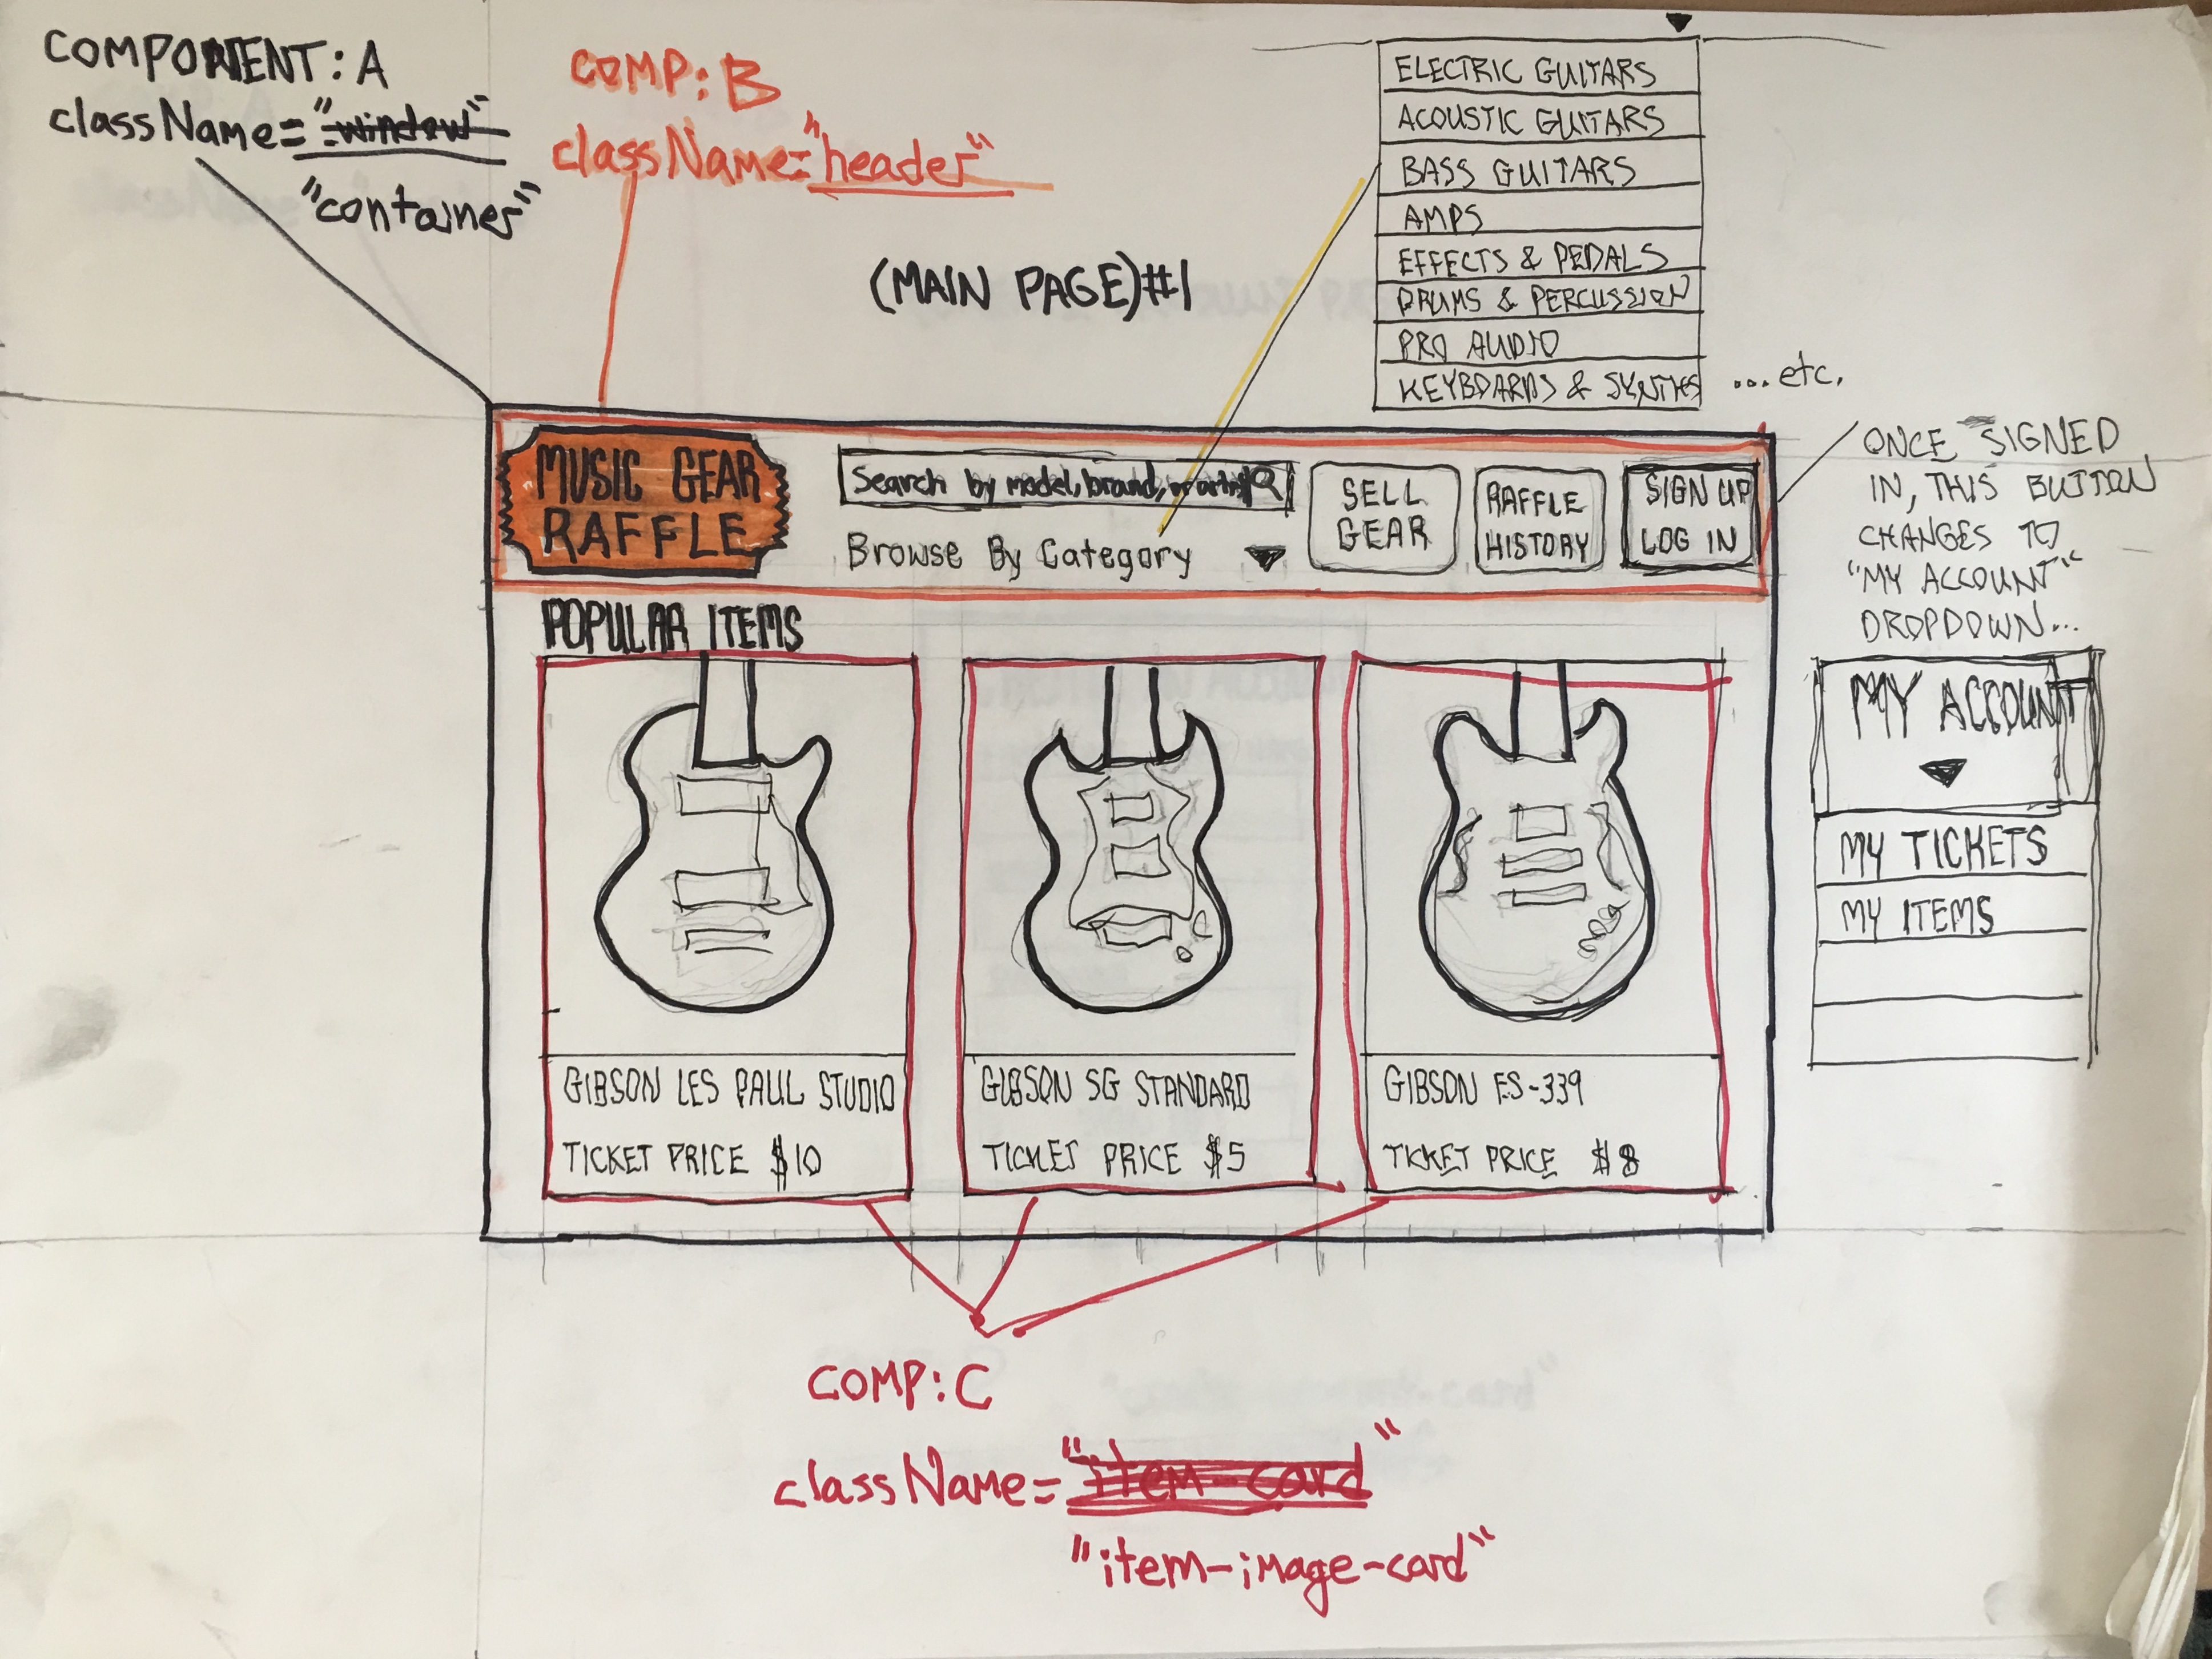 COMPONENT: A
className="window"
"container"
COMP: B
className="header"
(MAIN PAGE)#1
ELECTRIC GUITARS
ACOUSTIC GUITARS
BASS GUITARS
AMPS
EFFECTS & PEDALS
DRUMS & PERCUSSION
PRO AUDIO
KEYBOARDS & SYNTHS
...etc.
MUSIC GEAR
RAFFLE
Search by model, brand, or artist
Browse By Category
SELL
GEAR
RAFFLE
HISTORY
SIGN UP
LOG IN
ONCE SIGNED
IN, THIS BUTTON
CHANGES TO
"MY ACCOUNT"
DROPDOWN...
MY ACCOUNT
MY TICKETS
MY ITEMS
POPULAR ITEMS
GIBSON LES PAUL STUDIO
TICKET PRICE $10
GIBSON SG STANDARD
TICKET PRICE $5
GIBSON ES-339
TICKET PRICE $8
COMP: C
className="item-card"
"item-image-card"